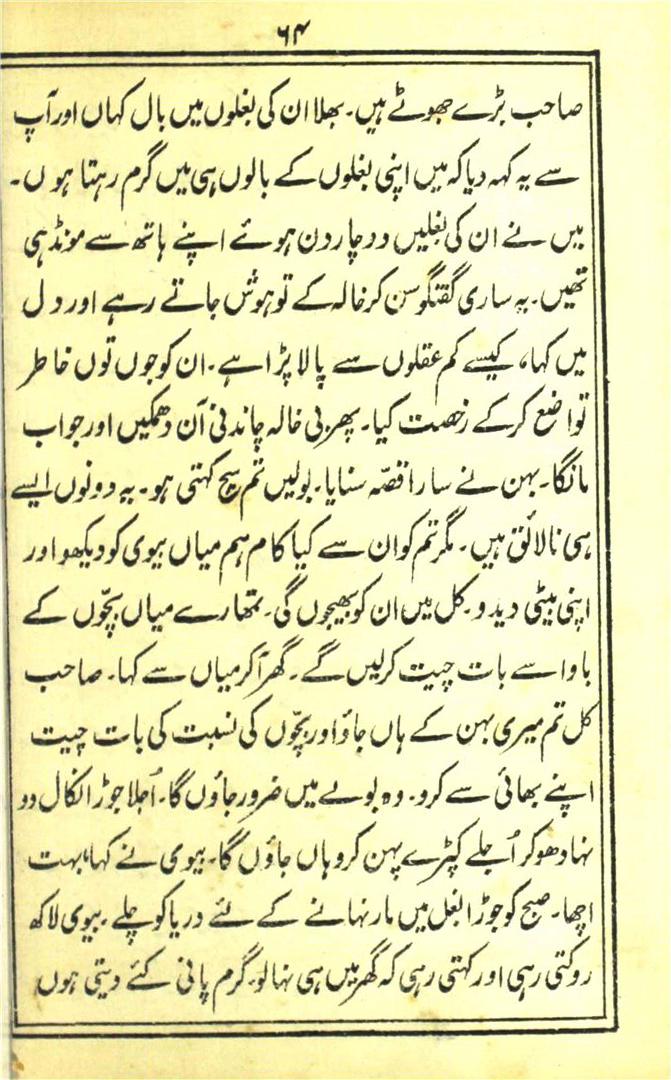 ۶۴
صاحب بڑے جھوٹے ہیں۔ بھلا ان کی بغلوں میں بال کہاں اور آپ
سے یہ کہہ دیا کہ میں اپنی بغلوں کے بالوں ہی میں گرم رہتا ہوں۔
میں نے ان کی بغلیں دو چار دن ہوئے اپنے ہاتھ سے مونڈ ہی
تھیں۔ یہ ساری گفتگو سن کر خالہ کے تو ہوش جاتے رہے اور دل
میں کہا، کیسے کم عقلوں سے پالا پڑا ہے۔ ان کو جوں توں خاطر
تواضع کر کے رخصت کیا۔ پھر بی خالہ چاندنی آن دھمکیں اور جواب
مانگا۔ بہن نے سارا قصّہ سنایا۔ بولیں تم سچ کہتی ہو۔ یہ دونوں ایسے
ہی نالائق ہیں۔ مگر تم کو ان سے کیا کام ہم میاں بیوی کو دیکھو اور
اپنی بیٹی دیدو۔ کل میں ان کو بھیجوں گی۔ تمھارے میاں بچّوں کے
باوا سے بات چیت کر لیں گے۔ گھر آ کر میاں سے کہا۔ صاحب
کل تم میری بہن کے ہاں جاؤ اور بچّوں کی نسبت کی بات چیت
اپنے بھائی سے کرو۔ وہ بولے میں ضرور جاؤں گا۔ اُجلا جوڑا نکال دو
نہا دھو کر اُجلے کپڑے پہن کر وہاں جاؤں گا۔ بیوی نے کہا "بہت
اچھا۔ صبح کو جوڑا بغل میں مار نہانے کے لئے دریا کو چلے۔ بیوی لاکھ
روکتی رہی اور کہتی رہی کہ گھر میں ہی نہا لو۔ گرم پانی کئے دیتی ہوں